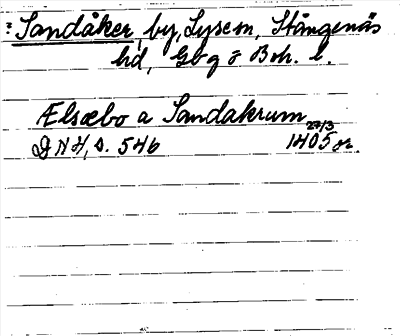 : Sandåker, by, Lyse sn, Stångenäs
hd, Gbg o Boh. l.
Ælsæbo a Sandakrum 27/3
DN II, s. 546 1405 or.